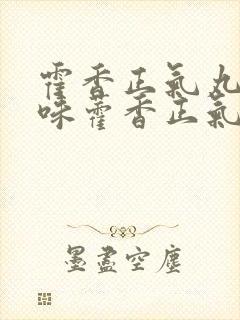 霍香正氣丸
味藿香正氣
墨盡空塵